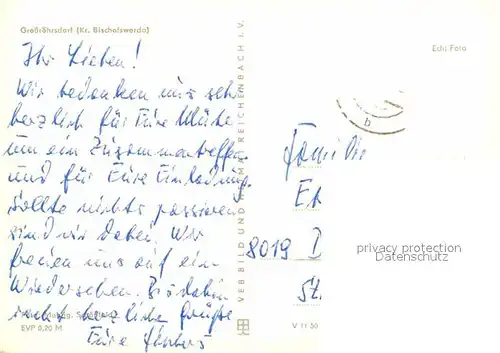 Großröhrsdorf (Kr. Bischofswerda)
Ihr Lieben!
Wir bedanken uns sehr
herzlich für Eure Mühe
um ein Zusammentreffen
und für Eure Einladung.
Sollte nichts passieren
sind wir dabei. Wir
freuen uns auf ein
Wiedersehen. Bis dahin
recht herzliche Grüße
Eure
EVP 0,20 M
VEB BILD UND HEIMAT REICHENBACH i. V.
V 11 50
Echt Foto
Familie
Et
8019 D
St
privacy protection
Datenschutz